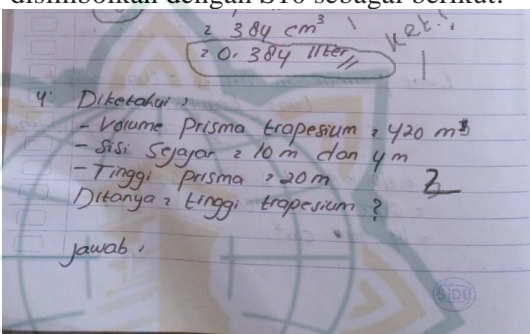 disimbolkan dengan S10 sebagai berikut:
= 384 cm³
= 0.384 liter //
ket:
1
4. Diketahui :
- Volume Prisma trapesium = 420 m³
- Sisi Sejajar = 10 m dan 4 m
- Tinggi prisma = 20 m
2
Ditanya = tinggi trapesium ?
Jawab :
SIDU